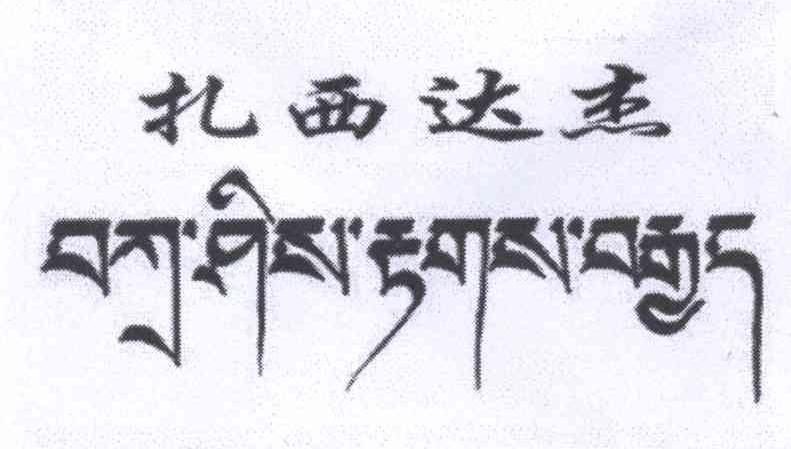 扎西达杰
བཀྲ་ཤིས་རྟགས་བརྒྱད